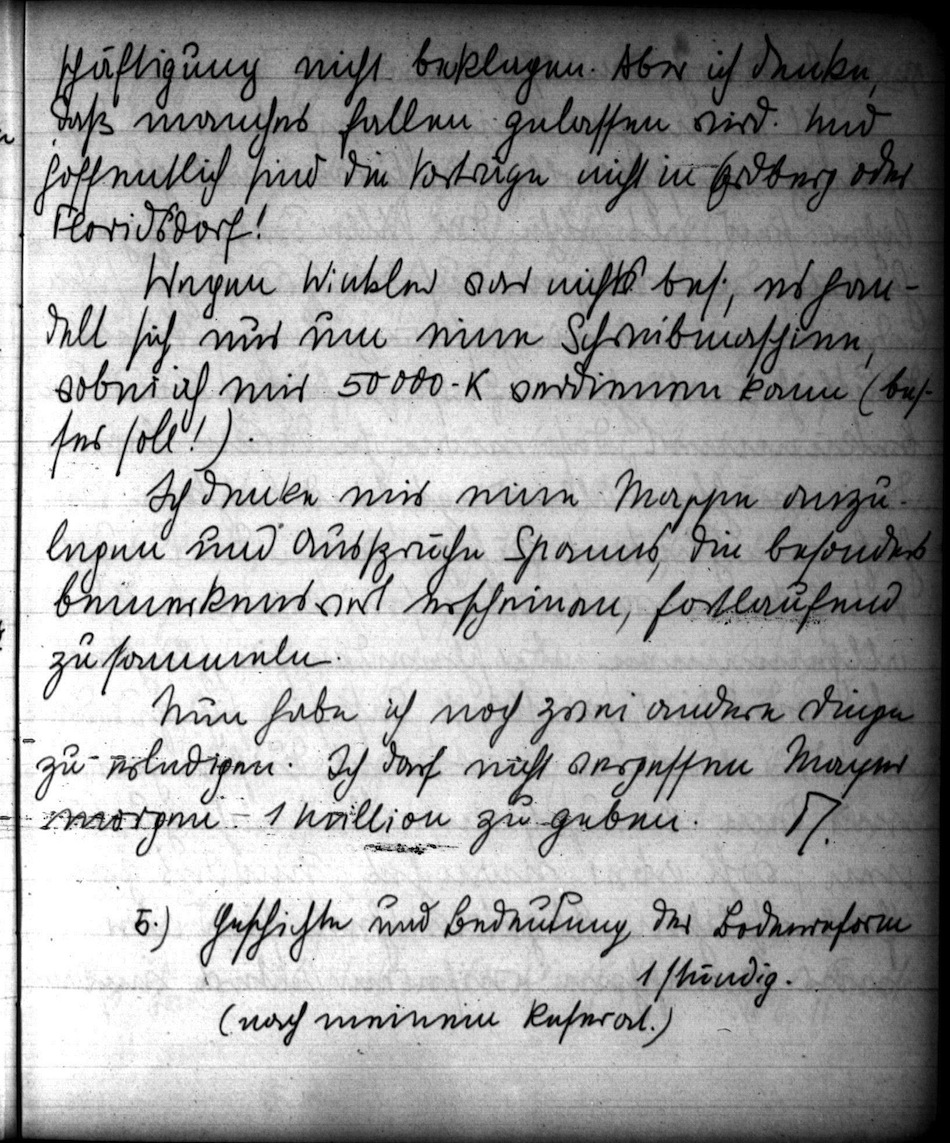 schäftigung nicht beklagen. Aber ich denke,
daß manches fallen gelassen wird. Und
hoffentlich sind die Vorträge nicht in Erdberg oder
Floridsdorf!
Wegen Winkler war nichts bes., es han-
delt sich nur um eine Schreibmaschine,
wobei ich mir 50000.-K verdienen kann (bes-
ser soll!).
Ich denke mir eine Mappe anzu-
legen und Aussprüche Spanns, die besonders
bemerkenswert erscheinen, fortlaufend
zu sammeln.
Nun habe ich noch zwei andere Dinge
zu erledigen. Ich darf nicht vergessen Mayer
morgen 1 Million zu geben.
5.) Geschichte und Bedeutung der Bodenreform
1 stündig.
(nach meinem Referat.)